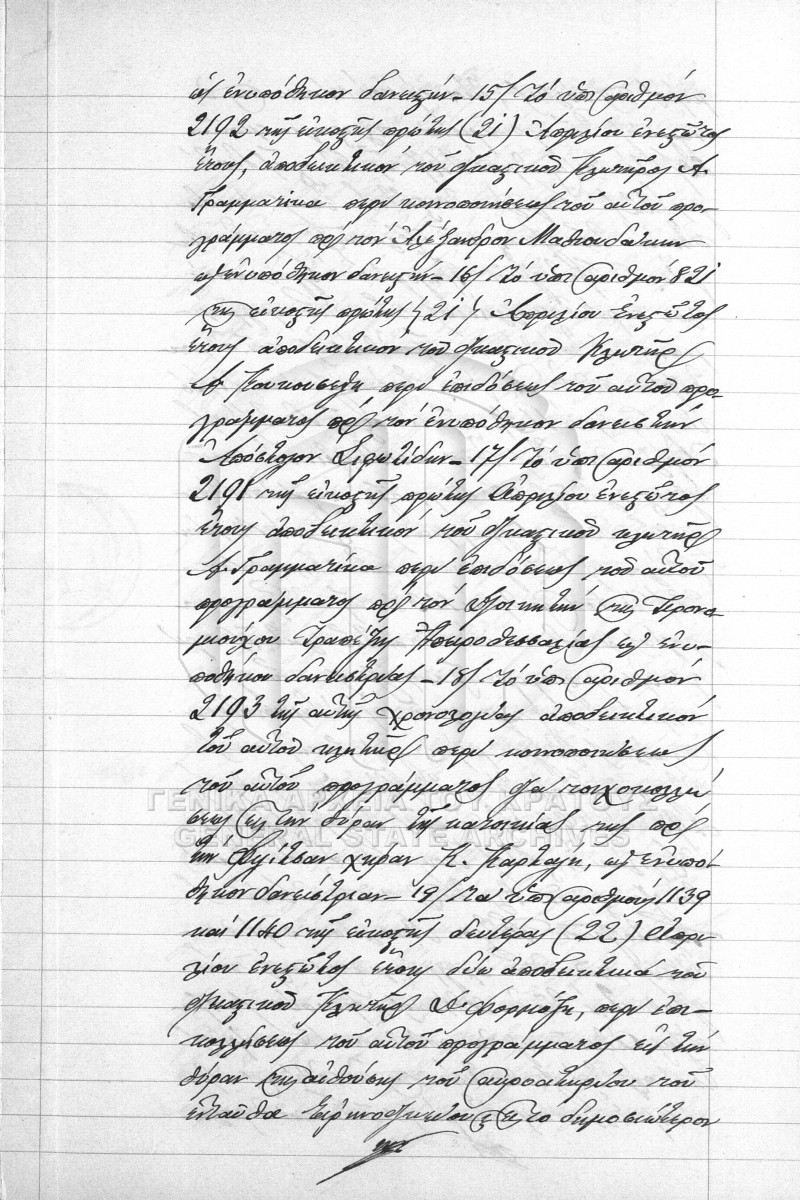 ὡς ἐνυπόθηκον δανειστήν – 15/ τό ὑπ' ἀριθμόν
2192 τῆς εἰκοστῆς πρώτης (21) Ἀπριλίου ἐνεστῶτος
ἔτους, ἀποδεικτικόν τοῦ δικαστικοῦ Κλητῆρος Α.
Γραμματίκα περί κοινοποιήσεως τοῦ αὐτοῦ προ-
γράμματος πρός τόν Ἀλέξανδρον
ὡς ἐνυπόθηκον δανειστήν – 16/ τό ὑπ' ἀριθμόν 821
τῆς εἰκοστῆς πρώτης (21) Ἀπριλίου ἐνεστῶτος
ἔτους ἀποδεικτικόν τοῦ δικαστικοῦ Κλητῆρος
περί ἐπιδόσεως τοῦ αὐτοῦ προ-
γράμματος πρός τόν ἐνυπόθηκον δανειστήν
Ἀπόστολον – 17/ τό ὑπ' ἀριθμόν
2191 τῆς εἰκοστῆς πρώτης Ἀπριλίου ἐνεστῶτος
ἔτους ἀποδεικτικόν τοῦ δικαστικοῦ κλητῆρος
Α. Γραμματίκα περί ἐπιδόσεως τοῦ αὐτοῦ
προγράμματος πρός τόν διοικητήν τῆς Προνο-
μιούχου Τραπέζης Ἠπειροθεσσαλίας ὡς ἐνυ-
ποθήκου δανειστρίας – 18/ τό ὑπ' ἀριθμόν
2193 τῆς αὐτῆς χρονολογίας ἀποδεικτικόν
τοῦ αὐτοῦ κλητῆρος περί κοινοποιήσεως
τοῦ αὐτοῦ προγράμματος διά τοιχοκολλή-
σεως εἰς τήν θύραν τῆς κατοικίας της πρός
τήν χήραν Κ. Καρτάλη, ὡς ἐνυπό-
θηκον δανείστριαν – 19/ τά ὑπ' ἀριθμούς 1139
καί 1140 τῆς εἰκοστῆς δευτέρας (22) Ἀπρι-
λίου ἐνεστῶτος ἔτους δύο ἀποδεικτικά τοῦ
δικαστικοῦ Κλητῆρος Δ. Φορμόζη, περί ἐπι-
κολλήσεως τοῦ αὐτοῦ προγράμματος εἰς τήν
θύραν τῆς αἰθούσης τοῦ ἀκροατηρίου τοῦ
ἐνταῦθα Εἰρηνοδικείου εἰς τό δημοσιώτερον
ΓΕΝΙΚΑ ΑΡΧΕΙΑ ΤΟΥ ΚΡΑΤΟΥΣ
GENERAL STATE ARCHIVES